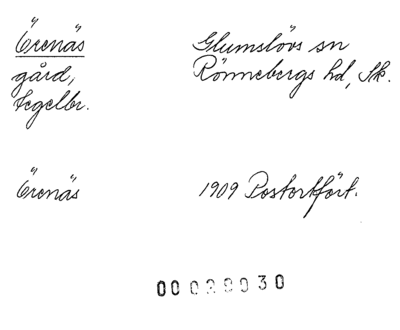 Örenäs Glumslövs sn
gård, Rönnebergs hd, Sk.
tegelbr.
Örenäs 1909 Postortfört.
00020030